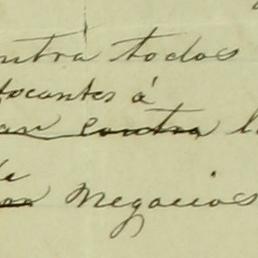 ntra todos
tocantes á
an contra l
de
negocios